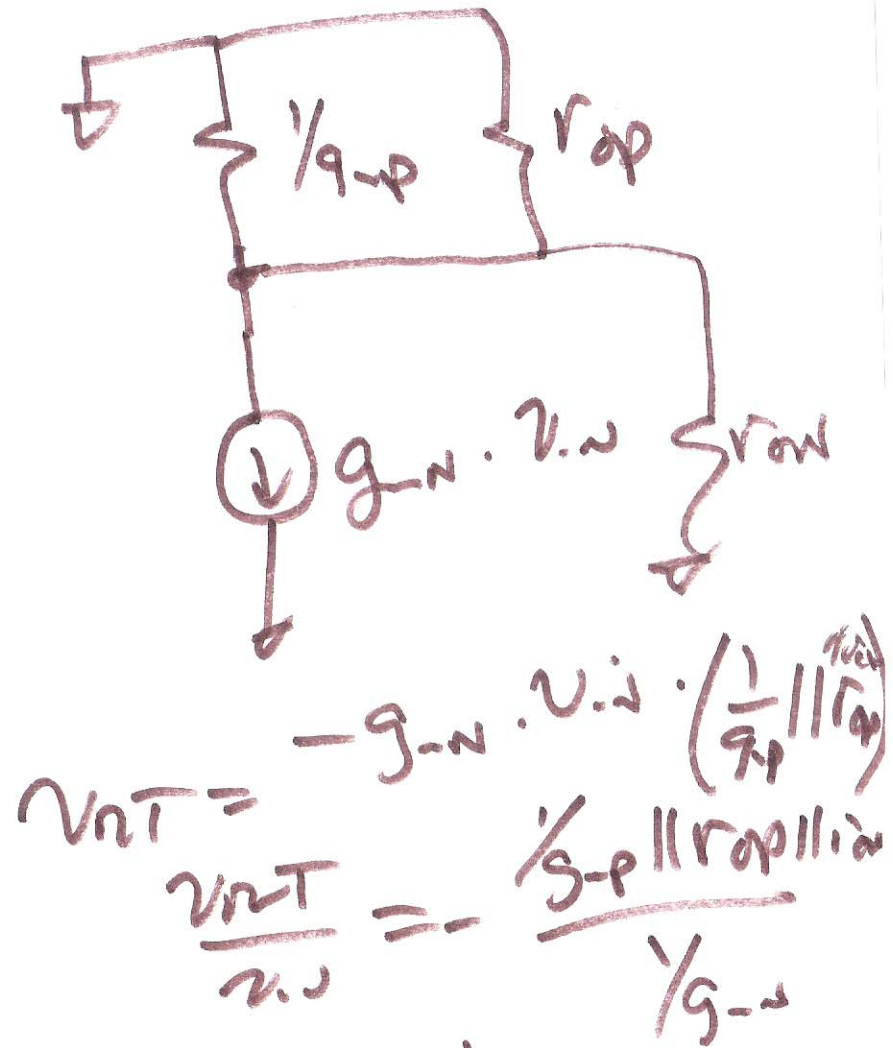 1/g_mp
r_op
g_mN · v_iN
r_oN
v_OUT = -g_mN · v_iN · (1/g_mp || r_op
v_OUT / v_iN = - (1/g_mp || r_op || r_oN) / (1/g_mN)